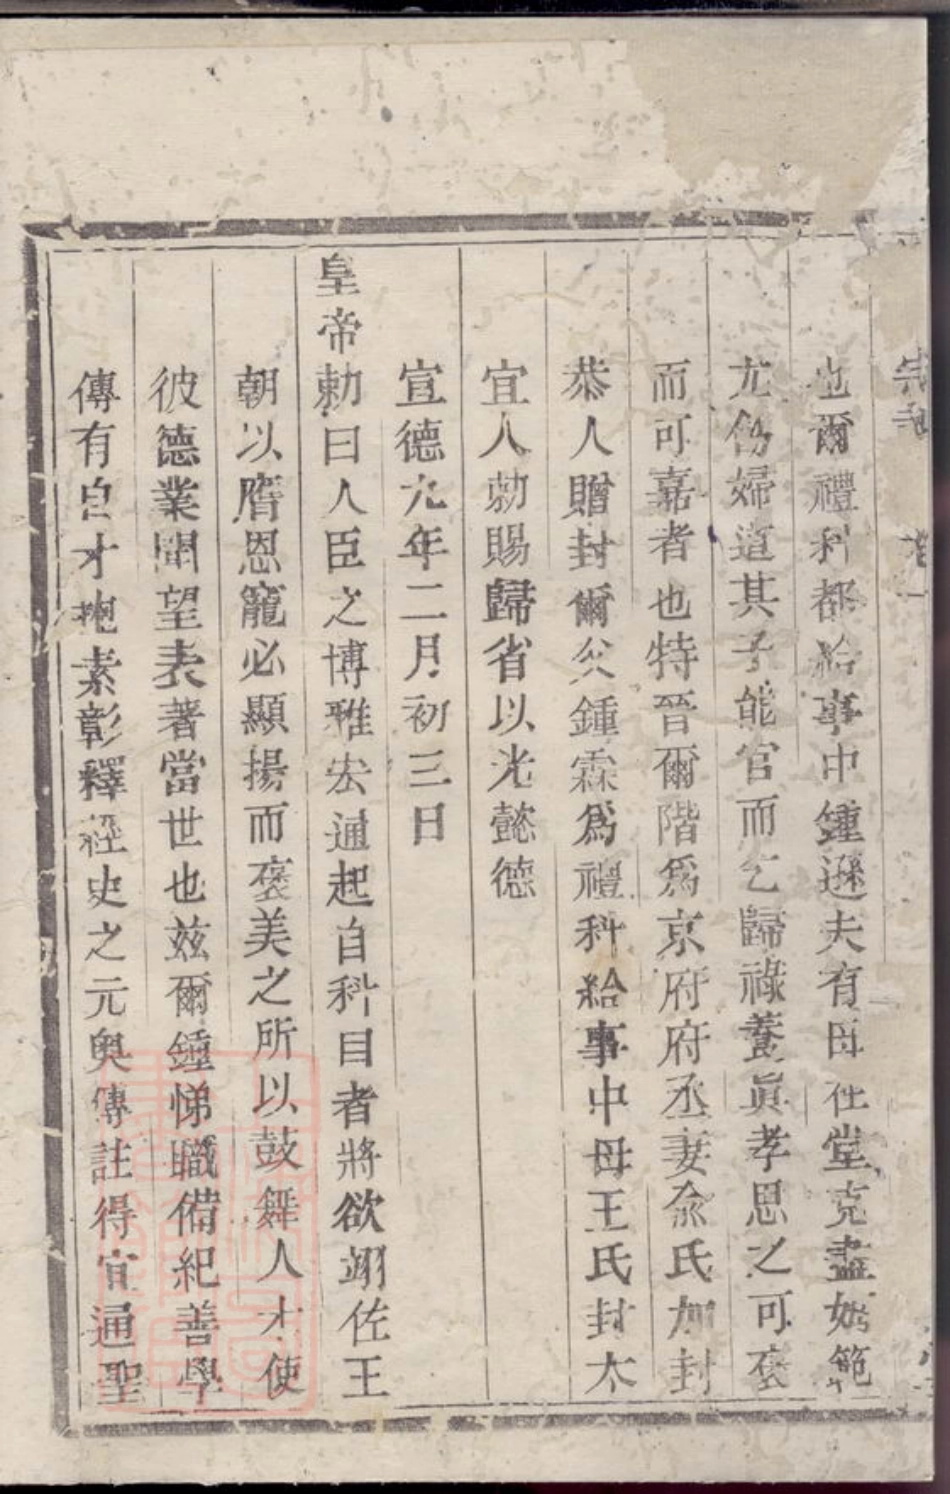 宗 卷一
也爾禮科都給事中鍾遜夫有母在堂克盡姆範
尤餙婦道其子能官而乞歸祿養眞孝思之可褒
而可嘉者也特晉爾階爲京府府丞妻俞氏加封
恭人贈封爾父鍾霖爲禮科給事中母王氏封太
宜人勅賜歸省以光懿德
宣德九年二月初三日
皇帝勅曰人臣之博雅宏通起自科目者將欲翊佐王
朝以膺恩寵必顯揚而褒美之所以鼓舞人才使
彼德業聞望表著當世也茲爾鍾悌職備紀善學
傳有自才抱素彰釋經史之元奧傳註得宜通聖